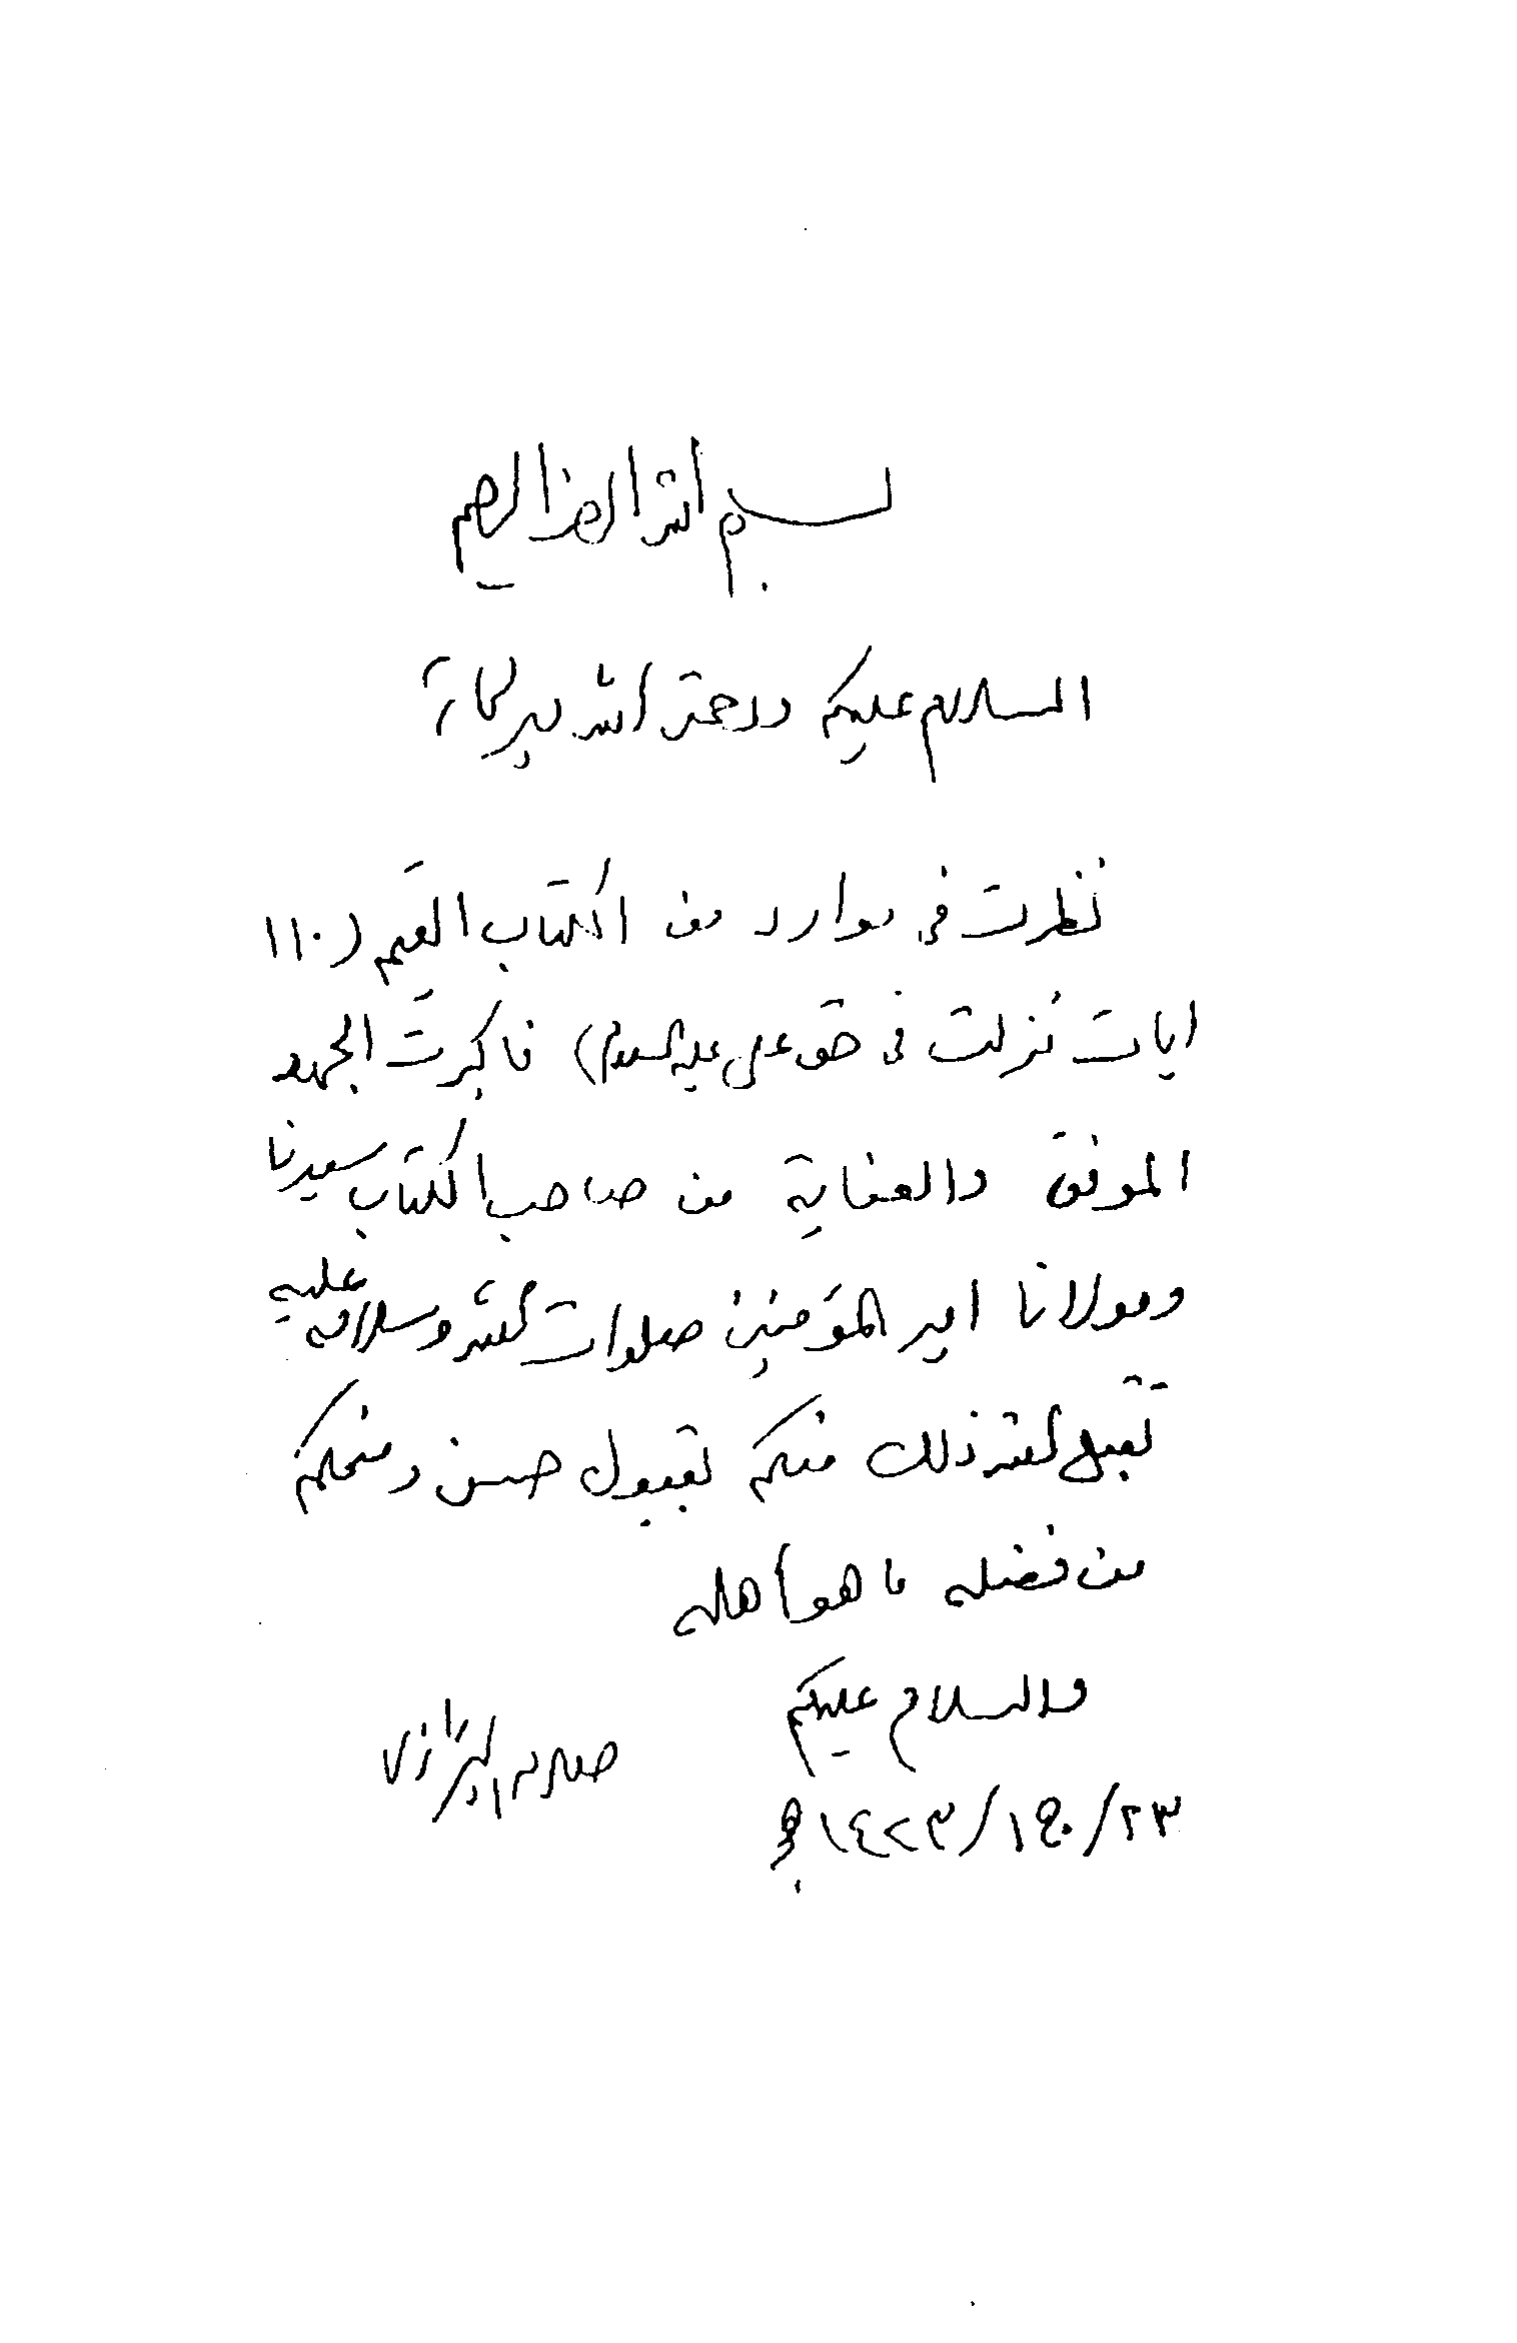 بسم الله الرحمن الرحيم
السلام عليكم ورحمة الله وبركاته
نظرت في موارد من الكتاب القيّم (١١٠
ايات نزلت في حق علي عليه السلام) فاكبرتُ الجهد
الموفق والعناية من صاحب الكتاب سيدنا
ومولانا امير المؤمنين صلوات الله وسلامه عليه
تقبل الله ذلك منكم بقبول حسن ومنحكم
من فضله ما هو اهله
والسلام عليكم
٢٣/ /١٤٢٣ هـ